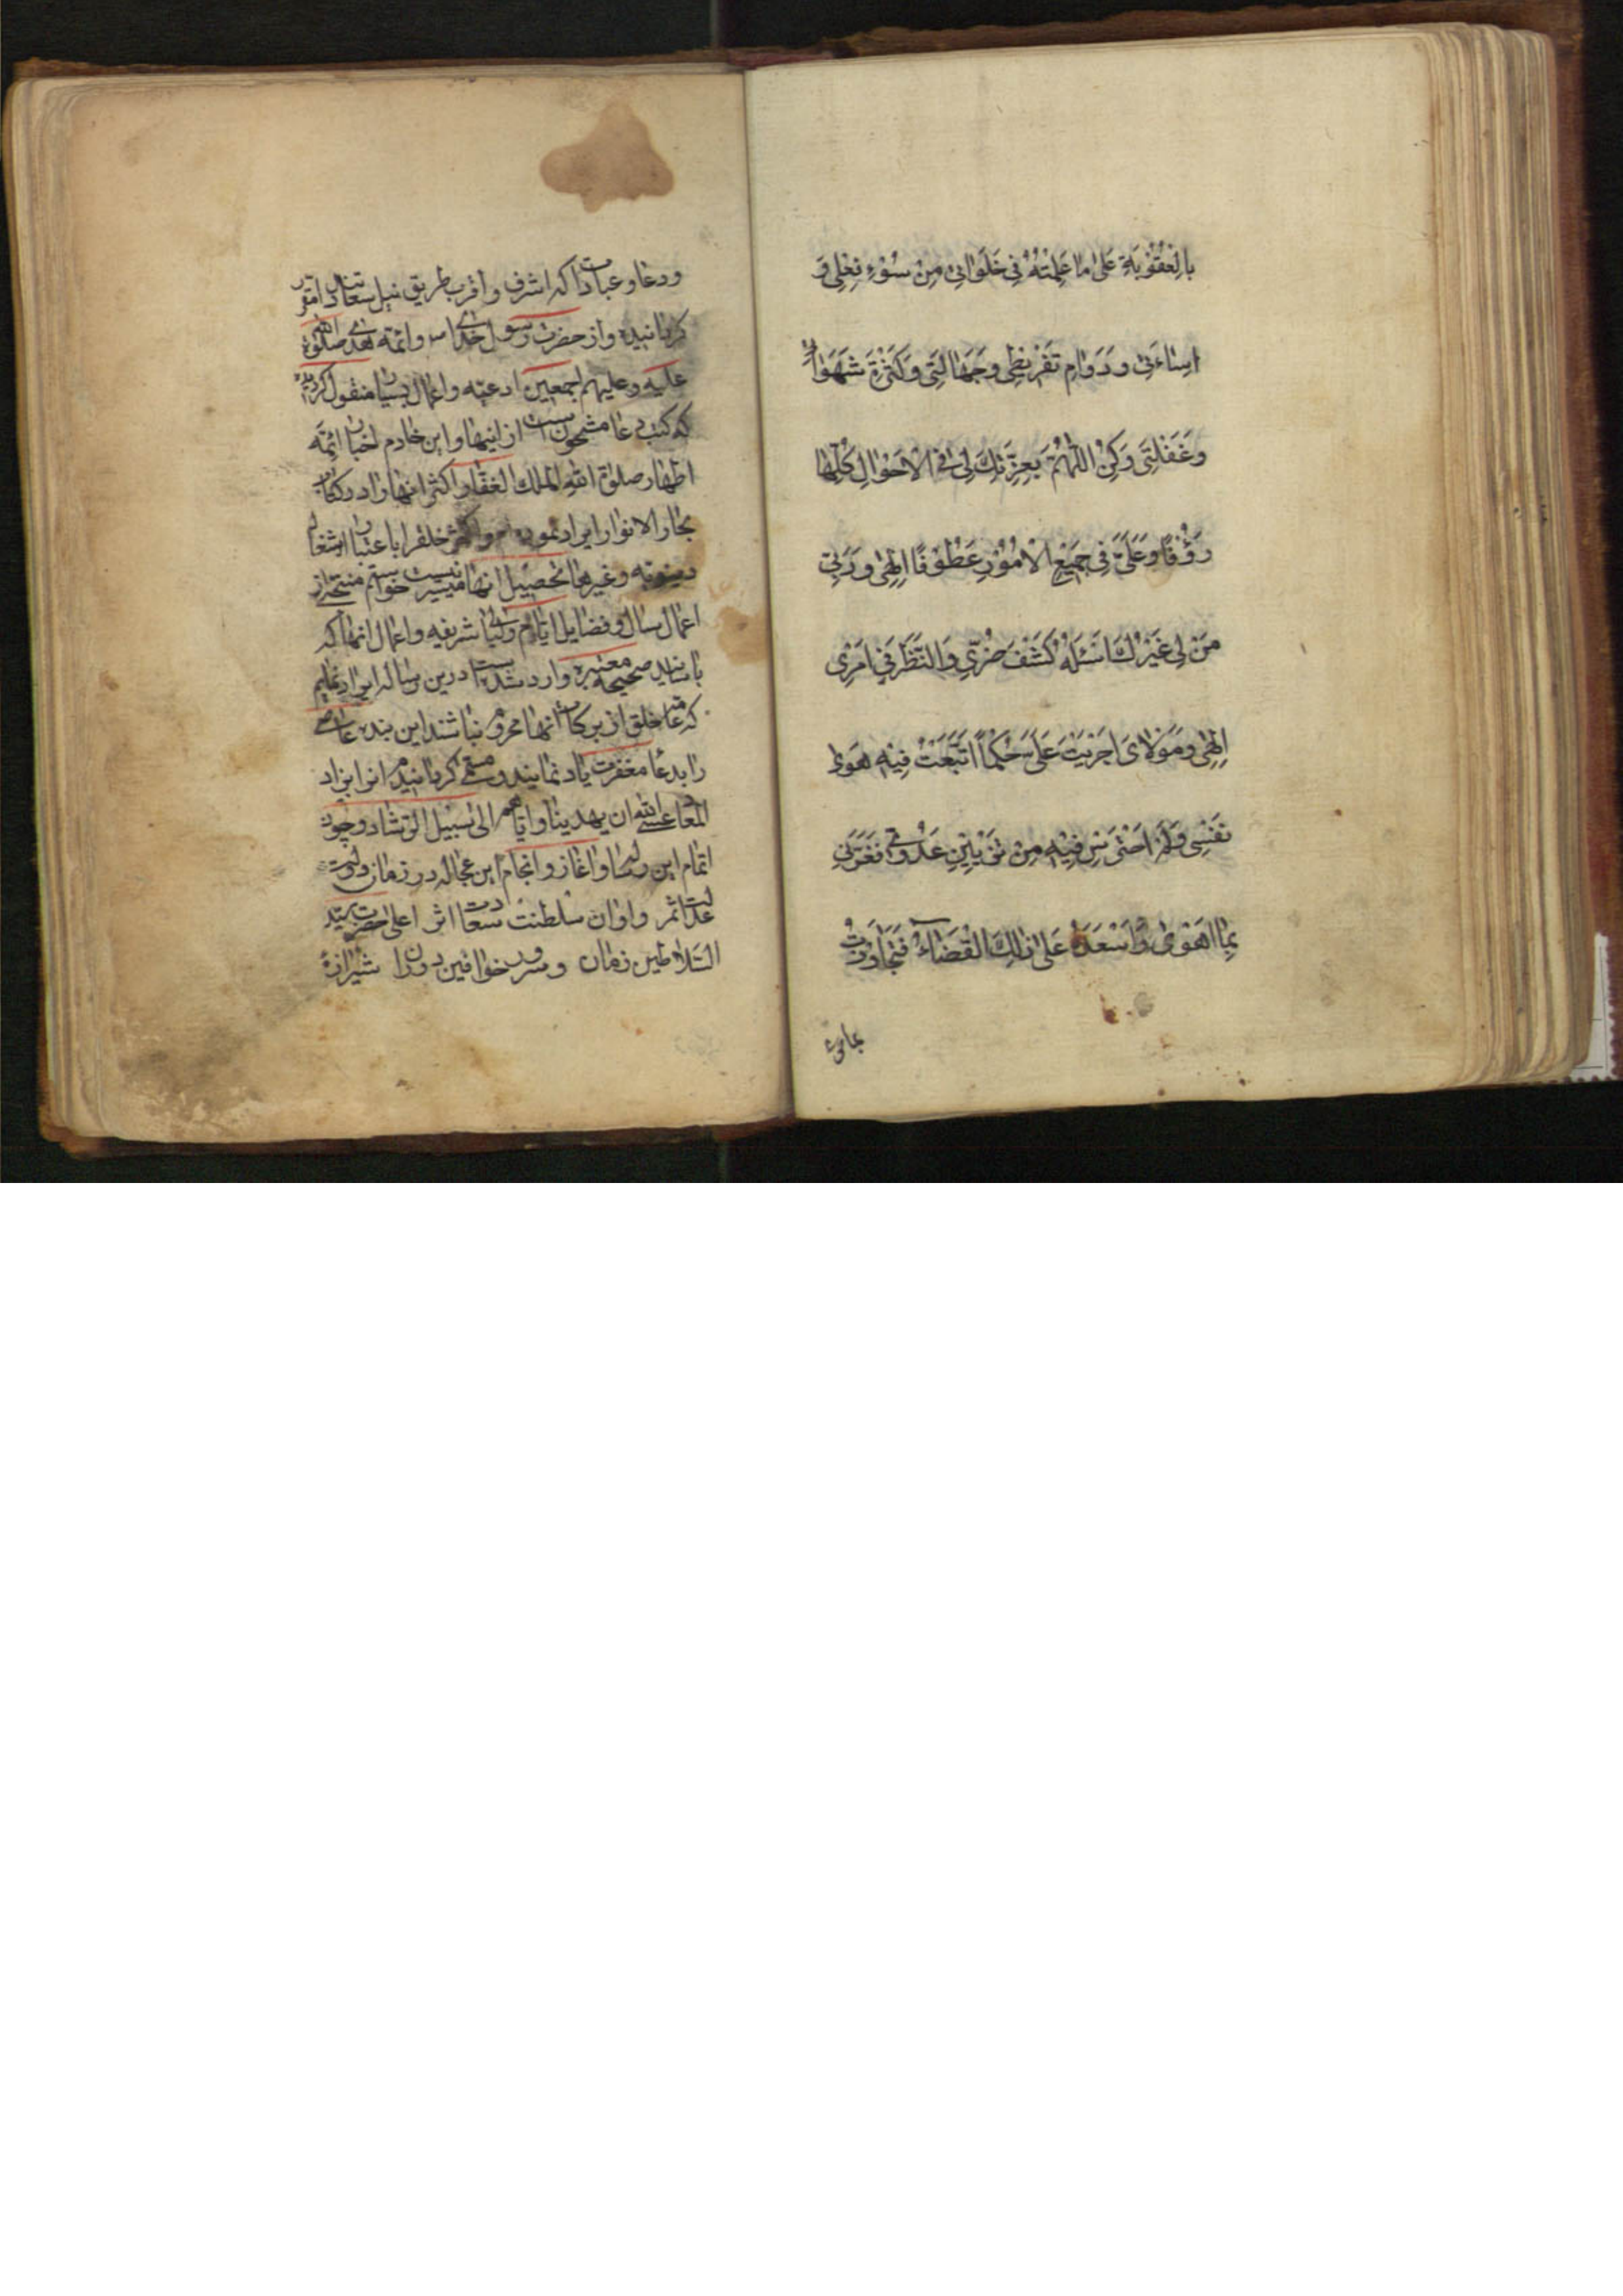 بِالْعُقُوْبَةِ عَلىٰ ما عَمِلْتُهُ فِي خَلَوٰاتِيْ مِنْ سُوْءِ فِعْلِي وَ
اِسٰاءَتِيْ وَ دَوٰامِ تَفْرِيْطِي وَ جَهٰالَتِي وَ كَثْرَةِ شَهَوٰاتِيْ
وَ غَفْلَتِي وَ كُنِ اللّٰهُمَّ بِعِزَّتِكَ لِي فِي الْاَحْوٰالِ كُلِّهٰا
رَؤُفًا وَ عَلَيَّ فِي جَمِيْعِ الْاُمُوْرِ عَطُوْفًا اِلٰهِي وَ رَبِّي
مَنْ لِي غَيْرُكَ اَسْئَلُهُ كَشْفَ ضُرِّي وَ النَّظَرَ فِي اَمْرِي
اِلٰهِي وَ مَوْلٰايَ اَجْرَيْتَ عَلَيَّ حُكْمًا اتَّبَعْتُ فِيْهِ هَوىٰ
نَفْسِي وَ لَمْ اَحْتَرِسْ فِيْهِ مِنْ تَزْيِيْنِ عَدُوِّي فَغَرَّنِي
بِمٰا اَهْوىٰ وَ اَسْعَدَهُ عَلىٰ ذٰلِكَ الْقَضٰاءُ فَتَجٰاوَزْتُ
بماجرى
ودعا وعبادات كه اشرف واقرب طريق نيل سعادتست مقرر
كردانيده واز حضرت رسول خداى ص وائمه هدى صلوة الله
عليه وعليهم اجمعين ادعيه واعمال بسيار منقول كرديده
كه كتب دعا مشحونست از انيها واين خادم اخبار ائمّه
اطهار صلوة الله الملك الغفّار اكثر انها را در كتاب
بحار الانوار ايراد نموده ام واكثر خلق را باعتبار اشغال
دنيويه وغيرها تحصيل انها ميسّر نيست خواستم منتخبى از
اعمال سال وفضايل ايّام وليالى شريفه واعمال انها كه
باسانيد صحيحه معتبره وارد شده است درين رساله ايراد نمايم
كه عامّه خلق از بركات انها محروم نباشند اين بنده عاصى
را بدعا مغفرت ياد نمايند ومسمّى كردانيدم انرا بزاد
المعاد عسى الله ان يهدينا وايّاهم الى سبيل الرّشاد وچون
اتمام اين رساله واغاز وانجام اين عجاله در زمان دولت
عدالت ثمر واوان سلطنت سعادت اثر اعلى حضرت سيّد
السّلاطين زمان وسرور خواقين دوران شيرازهٔ